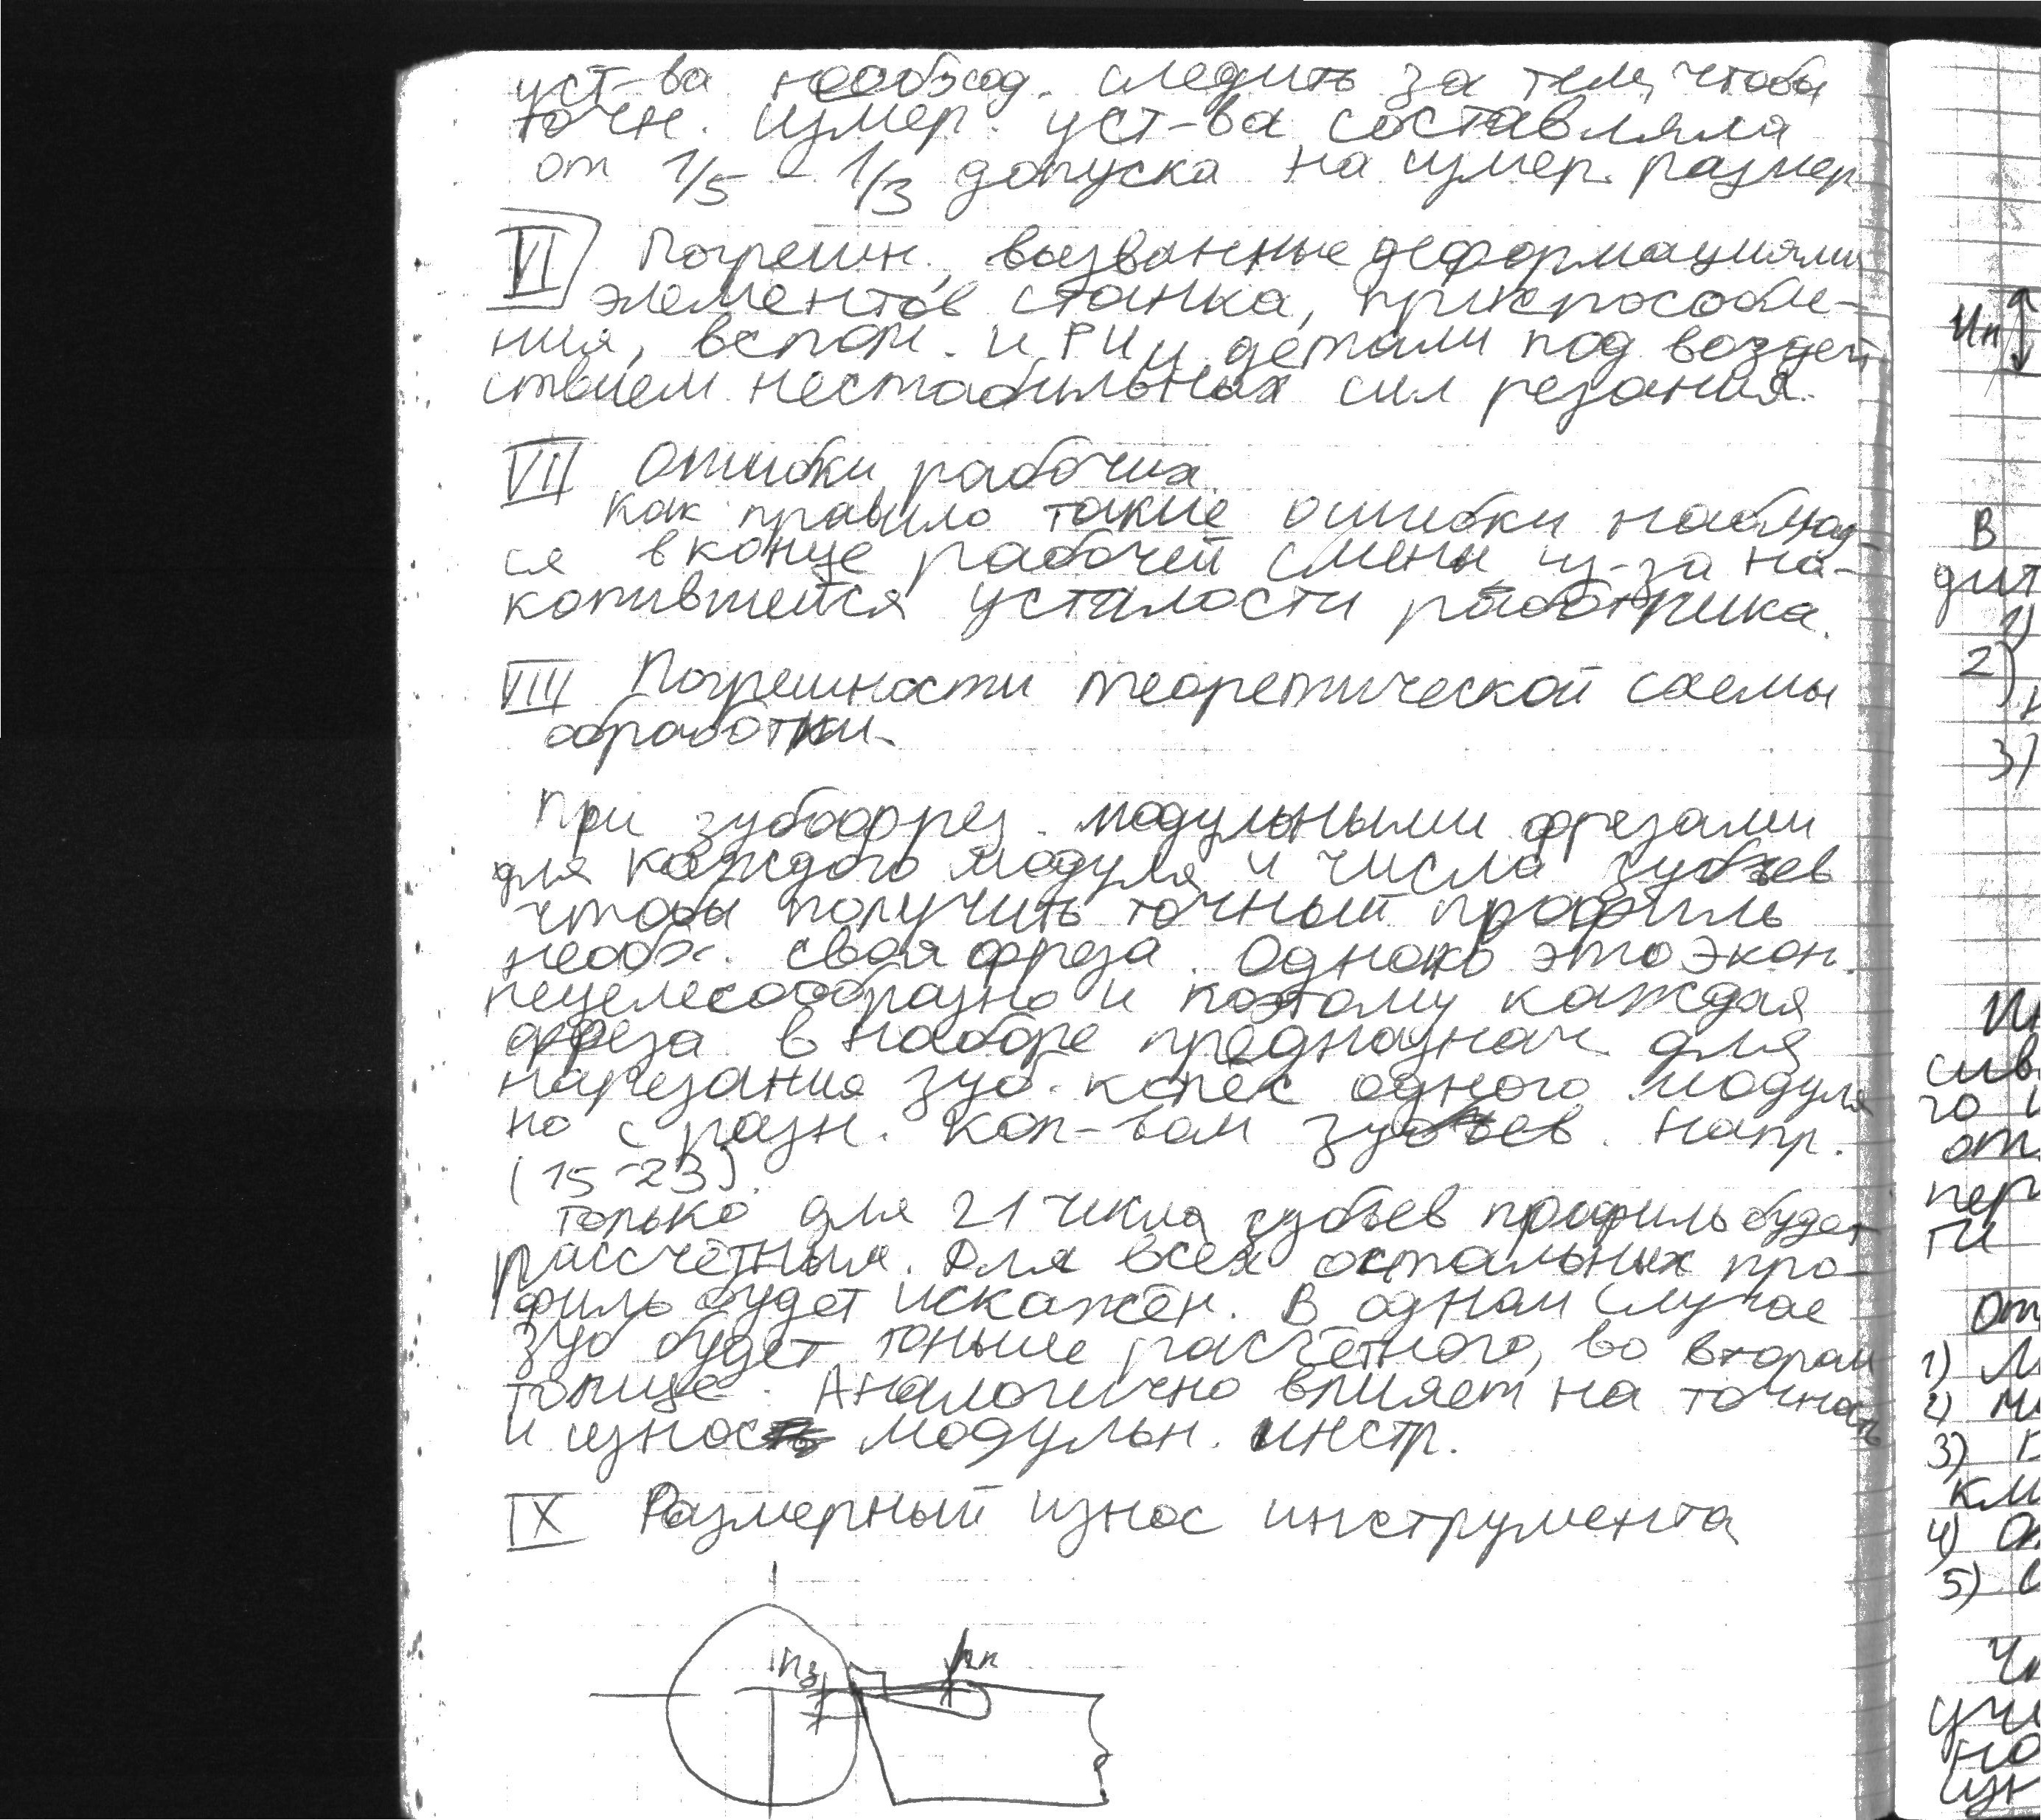 уст-ва необход. следить за тем, чтобы
точн. измер. уст-ва составляла
от 1/5 - 1/3 допуска на измер. размер
VI Погрешн., вызванные деформациями
элементов станка, приспособле-
ния, вспом. и РИ и детали под воздей
ствием нестабильных сил резания.
VII Ошибки рабочих.
Как правило такие ошибки наблюд-
ся в конце рабочей смены из-за на-
копившейся усталости работника.
VIII Погрешности теоретической схемы
обработки.
При зубофрез. модульными фрезами
для каждого модуля и числа зубьев
чтобы получить точный профиль
необх. своя фреза. Однако это экон.
нецелесообразно и поэтому каждая
фреза в наборе предназнач. для
нарезания зуб. колёс одного модуля
но с разн. кол-вом зубьев. Напр.
(15-23).
Только для 21 числа зубьев профиль будет
рассчётным. Для всех остальных про-
филь будет искажён. В одном случае
зуб будет тоньше расчётного, во втором
толще. Аналогично влияет на точность
и износ модульн. инстр.
IX Размерный износ инструмента
hз hп
Ип
В
дит
1)
2)
3)
Ип
сив
го и
от
пер
ти
От
1) М
2) М
3)
кл
4) О
5) С
Чи
учи
но